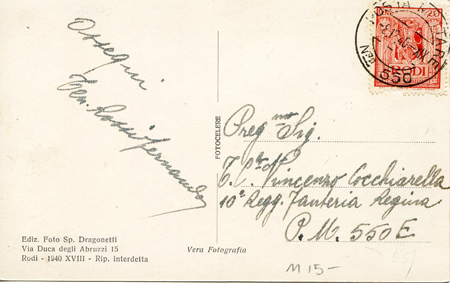 Ossequi
Ten. Rossi Fernando
FOTOCELERE
POSTA MILITARE
550
RODI
Preg mo Sig.
T.
Vincenzo Cocchiarella
10º Regg. Fanteria Regina
P. M. 550 E
Ediz. Foto Sp. Dragonetti
Via Duca degli Abruzzi 15
Rodi - 1940 XVIII - Rip. interdetta
Vera Fotografia
M 15-